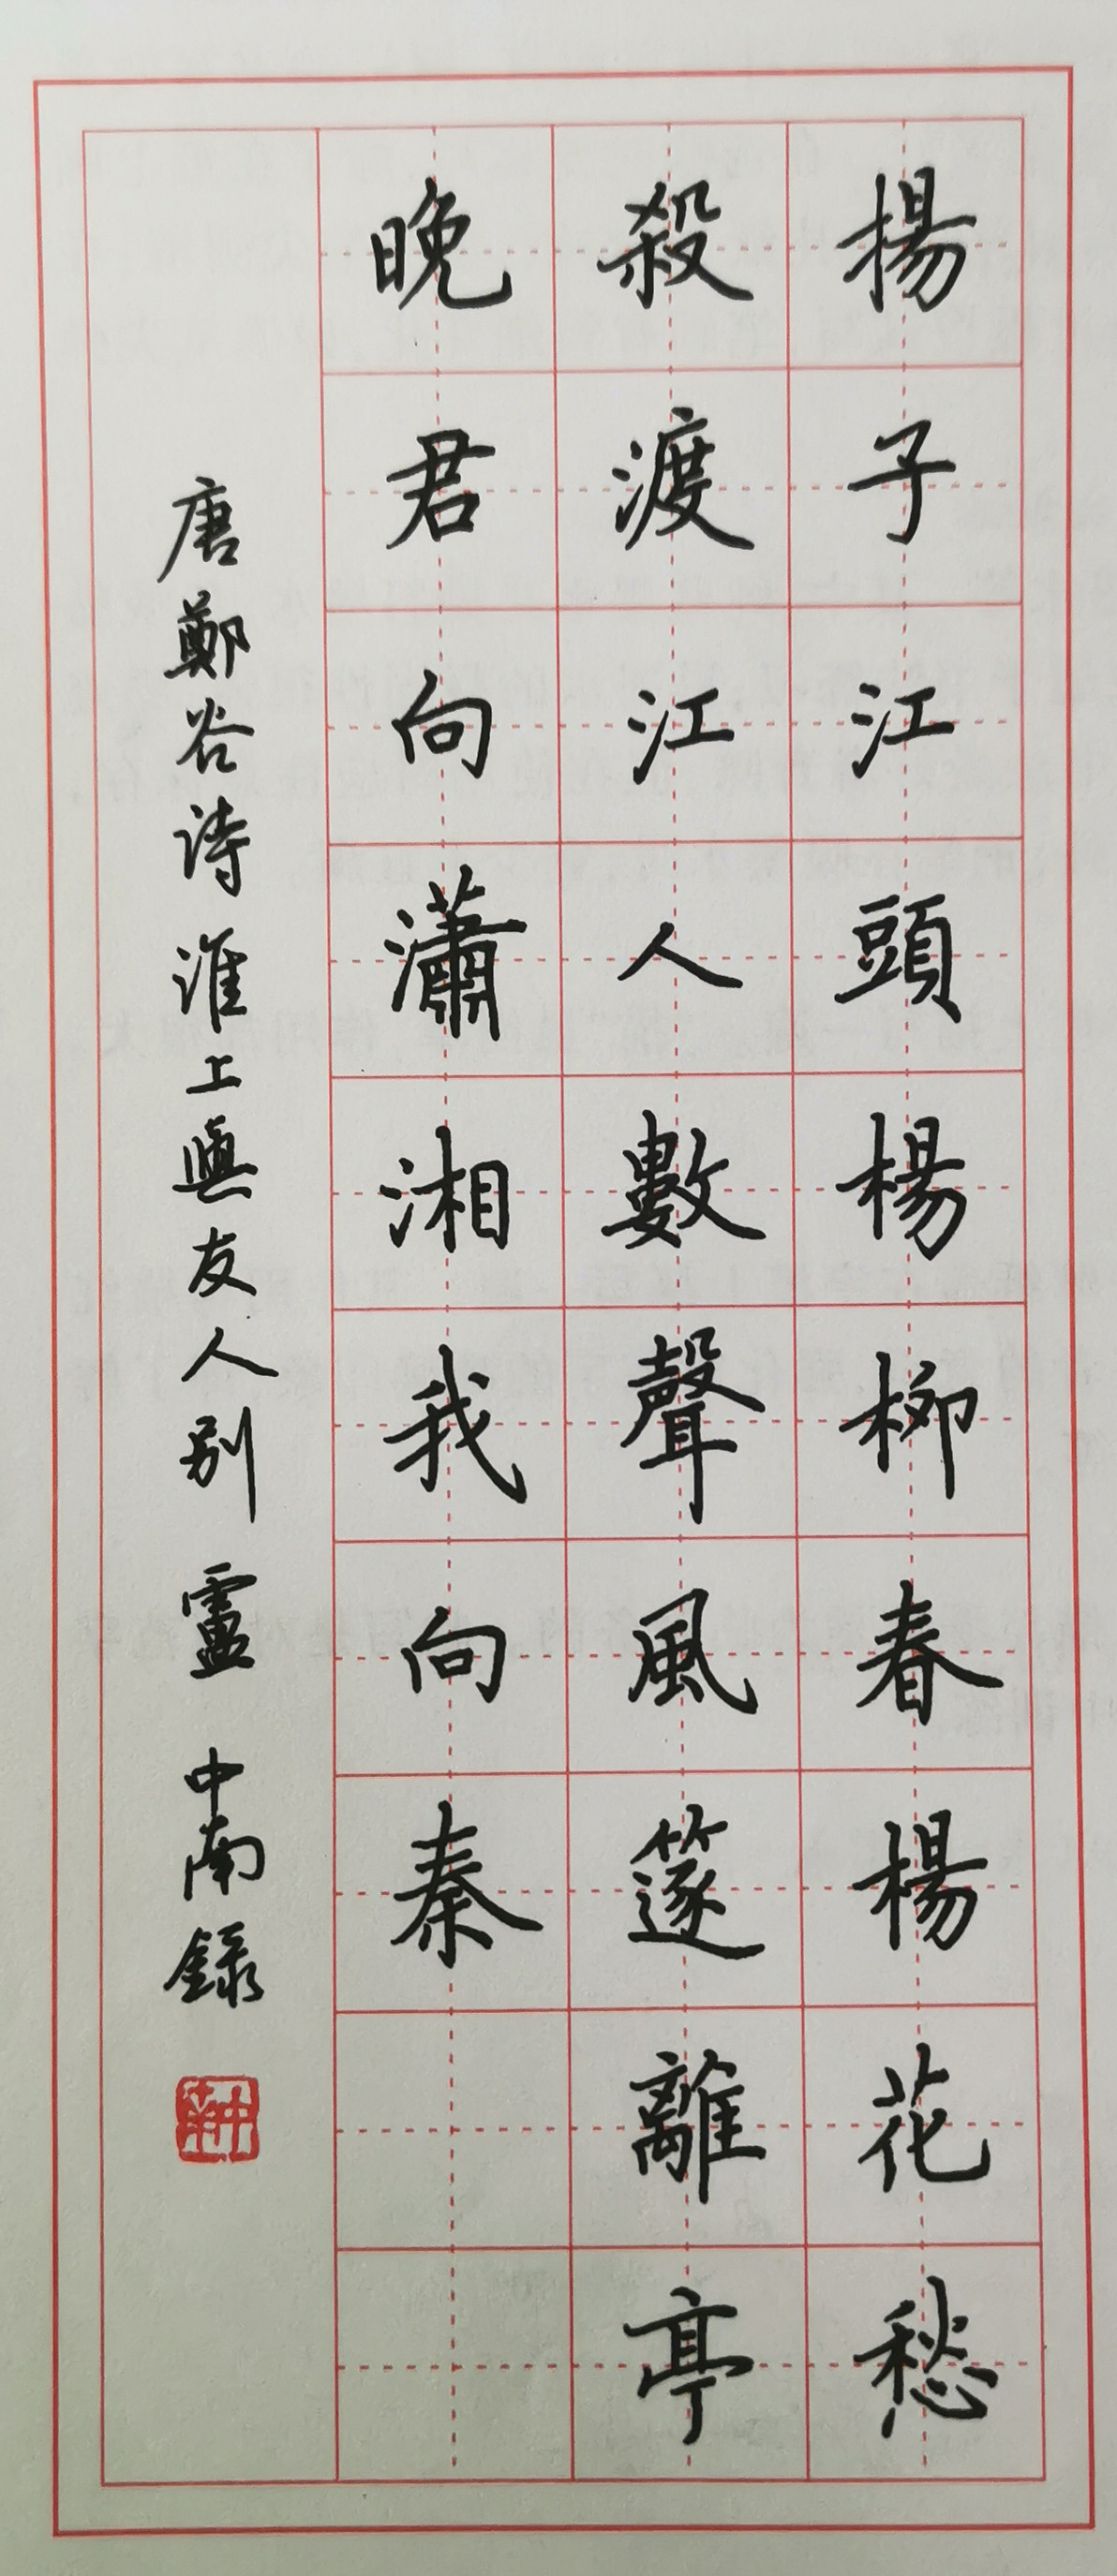 揚子江頭楊柳春楊花愁
殺渡江人數聲風篴離亭
晚君向瀟湘我向秦
唐鄭谷詩淮上與友人別 靈 中南錄